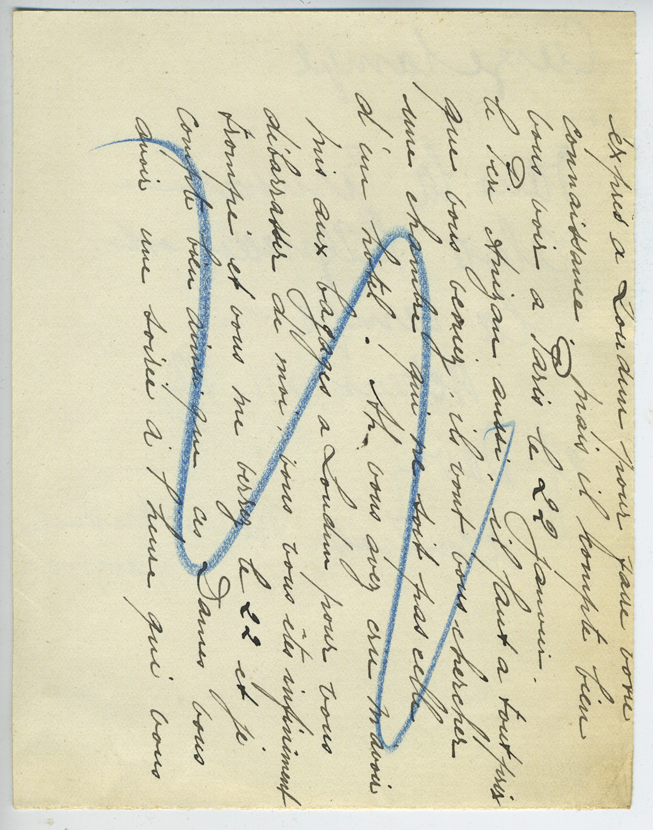 exprès a Loudun pour faire votre
connaissance, mais il compte bien
vous voir a Paris le 22 Janvier.
le Ben Anizan aussi, il faut a tout prix
que vous veniez, ils vont vous chercher
une chambre qui ne soit pas celle
d'un hotel. Ah, vous avez cru m'avoir
mis aux bagages a Loudun pour vous
débarrasser de moi, vous vous êtes infiniment
trompé et vous me verrez le 22 et je
compte bien ainsi que ces Dames vous
avoir une soirée à l'heure qui vous